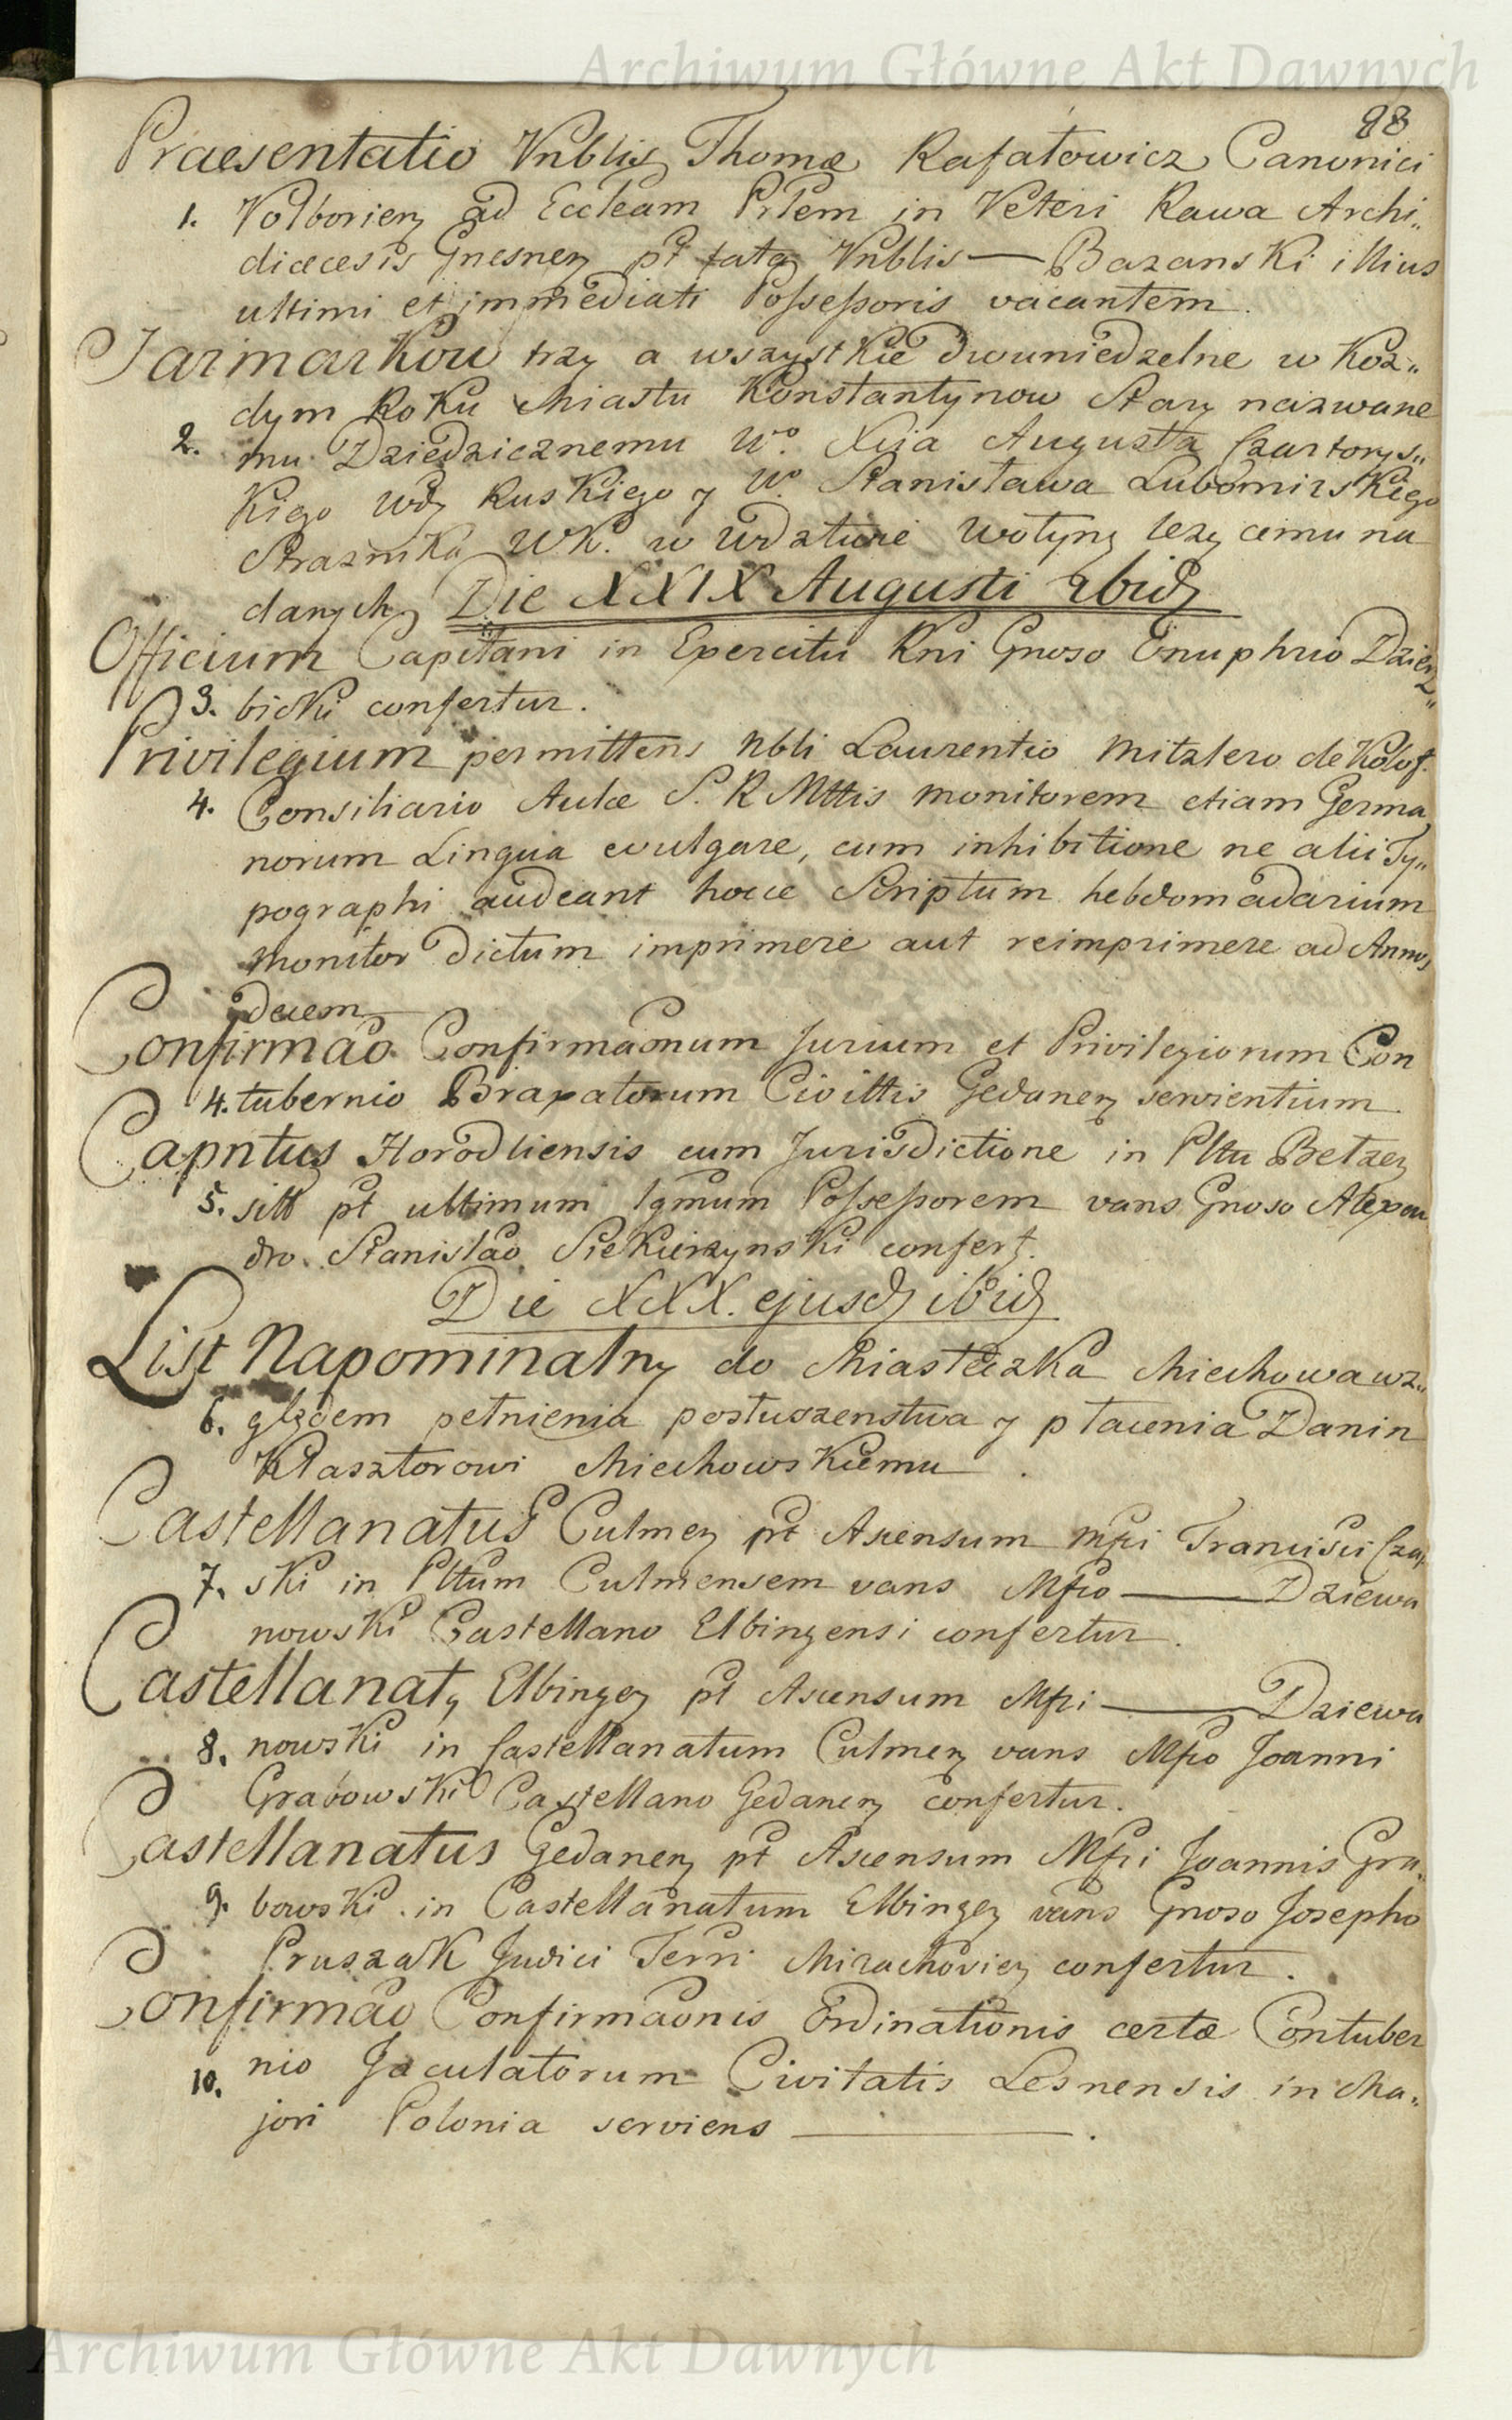 Archiwum Główne Akt Dawnych
98
Praesentatio Vnblis Thomæ Rafałowicz Canonici
1. Volborien ad Eccleam Prlem in Veteri Rawa Archi„
diœcesis Gnesnen pt fata Vnblis — Bazanski illius
ultimi et immediati Possessoris vacantem.
Jarmarkow trzy a wszystkie dwuniedzelne w Koz„
dym Roku Miastu Konstantynow Stary nazwane
2. mu Dziedzicznemu Wo. Xcia Augusta Czartorys„
Kiego Wdy Ruskiego y Wo Stanisława Lubomirskiego
Straznika WK. w Wdztwie Wołyny lezącemu na
danych Die XXIX Augusti ibid
Officium Capitani in Exercitu Rni Gnoso Onuphrio Dzier
3. bicki confertur.
Privilegium permittens Nbli Laurentio Mitzlero de Kolof.
4. Consiliario Aulæ S. R Mttis monitorem etiam Germa
norum Lingua evulgare, cum inhibitione ne alii Ty„
pographi audeant hocce Scriptum hebdomadarium
monitor dictum imprimere aut reimprimere ad Annos
decem
Confirmao Confirmaonum Jurium et Privilegiorum Con
4. tubernio Braxatorum Civittis Gedanen servientium.
Capntus Horodliensis cum Jurisdictione in Pltu Belzen
5. sitt pt ultimum Igmum Possessorem vans Gnoso Alexan
dro Stanislao Siekierzynski confert.
Die XXX. ejusd ibid
List Napominalny do Miasteczka Miechowa wz„
6. ględem pełnienia posłuszenstwa y płacenia Danin
Klasztorowi Miechowskiemu.
Castellanatus Culmen pt Ascensum Mfci Francisci Czap
7. ski in Pltum Culmensem vans Mfco — Dziewa
nowski Castellano Elbingensi confertur.
Castellanaty Elbingen pt Ascensum Mfci — Dziewa
8. nowski in Castellanatum Culmen vans Mfco Joanni
Grabowski Castellano Gedanen confertur.
Castellanatus Gedanen pt Ascensum Mfci Joannis Gra„
9. bowski in Castellanatum Elbingen vans Gnoso Josepho
Pruszak Judici Terri Mirachovien confertur.
Confirmao Confirmaonis Ordinationis certæ Contuber
10. nio Jaculatorum Civitatis Lesnensis in Ma„
jori Polonia serviens —.
Archiwum Główne Akt Dawnych